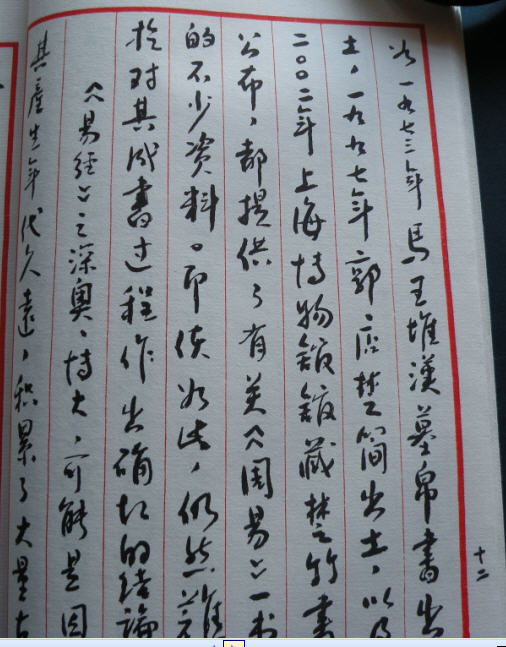 如一九七三年馬王堆漢墓帛書出
土，一九九七年郭店楚简出土，以及
二〇〇二年上海博物館館藏楚竹書
公布，都提供了有关《周易》一书
的不少资料。即使如此，仍然难
于对其成書过程作出确切的结論
《易经》之深奥、博大，可能是因
其產生年代久遠，积累了大量古
十二